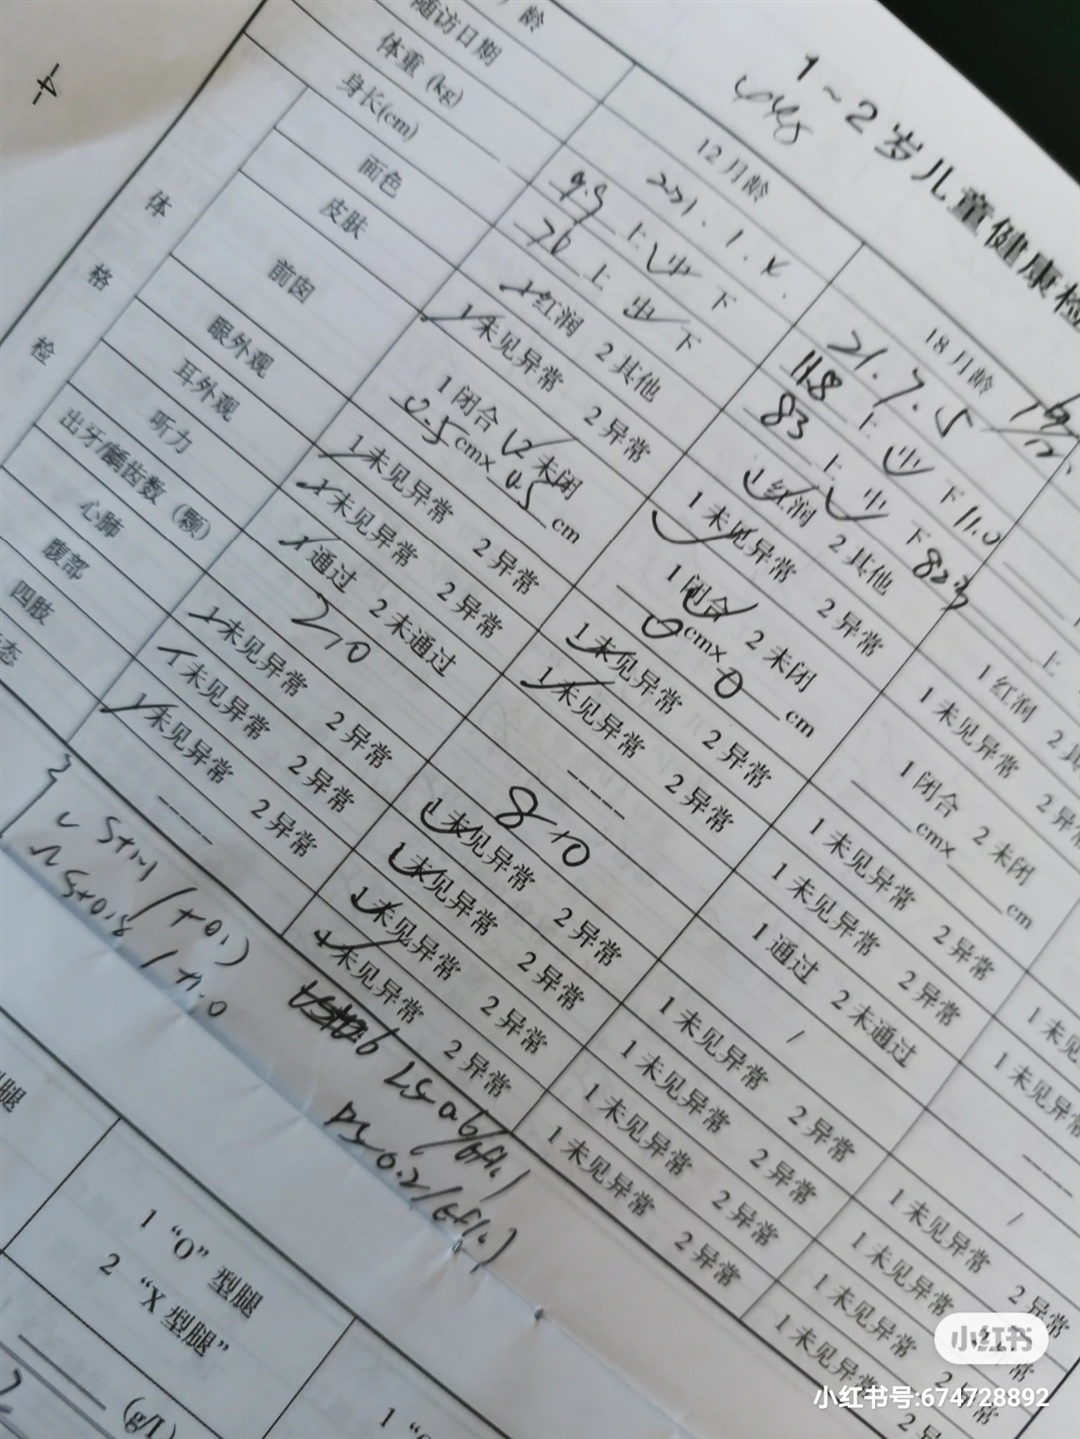 1~2岁儿童健康检
龄 12月龄 18月龄
随访日期 21.7.5
体重(kg) 9.9 上 中 下 11.8 上 中 下 11.0
身长(cm) 76 上 中 下 83 上 中 下 82.3 上
体格检
面色 1红润 2其他 1红润 2其他 1红润 2其
皮肤 1未见异常 2异常 1未见异常 2异常 1未见异常 2异常
前囟 1闭合 2未闭 1闭合 2未闭 1闭合 2未闭
0.5cm×0.5cm 0cm×0cm cm× cm
眼外观 1未见异常 2异常 1未见异常 2异常 1未见异常 2异常 1未见
耳外观 1未见异常 2异常 1未见异常 2异常 1未见异常 2异常 1未见异常
听力 1通过 2未通过 ---- 1通过 2未通过 ----
出牙/龋齿数(颗) 2/0 8/0 / /
心肺 1未见异常 2异常 1未见异常 2异常 1未见异常 2异常 1未见异常 2异常
腹部 1未见异常 2异常 1未见异常 2异常 1未见异常 2异常 1未见异常 2异常
四肢 1未见异常 2异常 1未见异常 2异常 1未见异常 2异常 1未见异常 2异常
态 ---- 1未见异常 2异常 1未见异常 2异常 1未见异常 2异
腿
1 “O”型腿
2 “X型腿”
1 “
(g/L)
小红书
小红书号:674728892